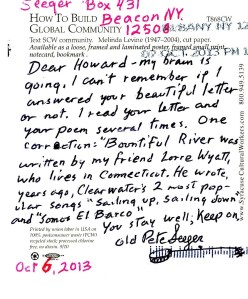 Seeger Box 431
HOW TO BUILD Beacon NY.
GLOBAL COMMUNITY 12508
T868CW
ALBANY NY 12
Text SCW community. Melinda Levine (1947-2004), cut paper.
Available as a loose, framed and laminated poster, framed small print,
notecard, bookmark.
07 OCT 2013 PM
Dear Howard - my brain is
going. I can't remember if I
answered your beautiful letter
or not. I read your letter and
your poem several times. One
correction: "Bountiful River was
written by my friend Lorre Wyatt,
who lives in Connecticut. He wrote,
years ago, Clearwater's 2 most pop-
ular songs "Sailing up, sailing down"
and "Somos El Barco"
You stay well; Keep on,
Old Pete Seeger
Printed by union labor in USA on
100% postconsumer waste (PCW)
recycled stock; processed chlorine
free.
Oct 6, 2013
www.SyracuseCulturalWorkers.com